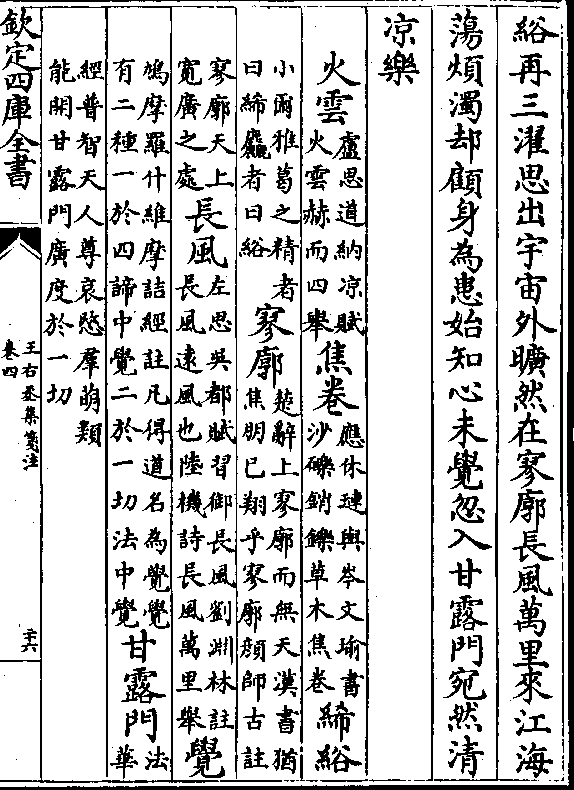 綌再三濯思出宇宙外曠然在寥廓長風萬里來江海
蕩煩濁却顧身為患始知心未覺忽入甘露門宛然清
凉樂
火雲
盧思道納凉賦
火雲赫而四舉
焦卷
應休璉與岑文瑜書
沙礫銷鑠草木焦卷
絺綌
小爾雅葛之精者
曰絺麤者曰綌
寥廓
楚辭上寥廓而無天漢書猶
焦朋已翔乎寥廓顔師古註
寥廓天上
寛廣之處
長風
左思吳都賦習御長風劉淵林註
長風遠風也陸機詩長風萬里舉
覺
鳩摩羅什維摩詰經註凡得道名為覺覺
有二種一於四諦中覺二於一切法中覺
甘露門
法
華
經普智天人尊哀愍羣萌類
能開甘露門廣度於一切
欽定四庫全書
王右丞集箋注
卷四
二十六